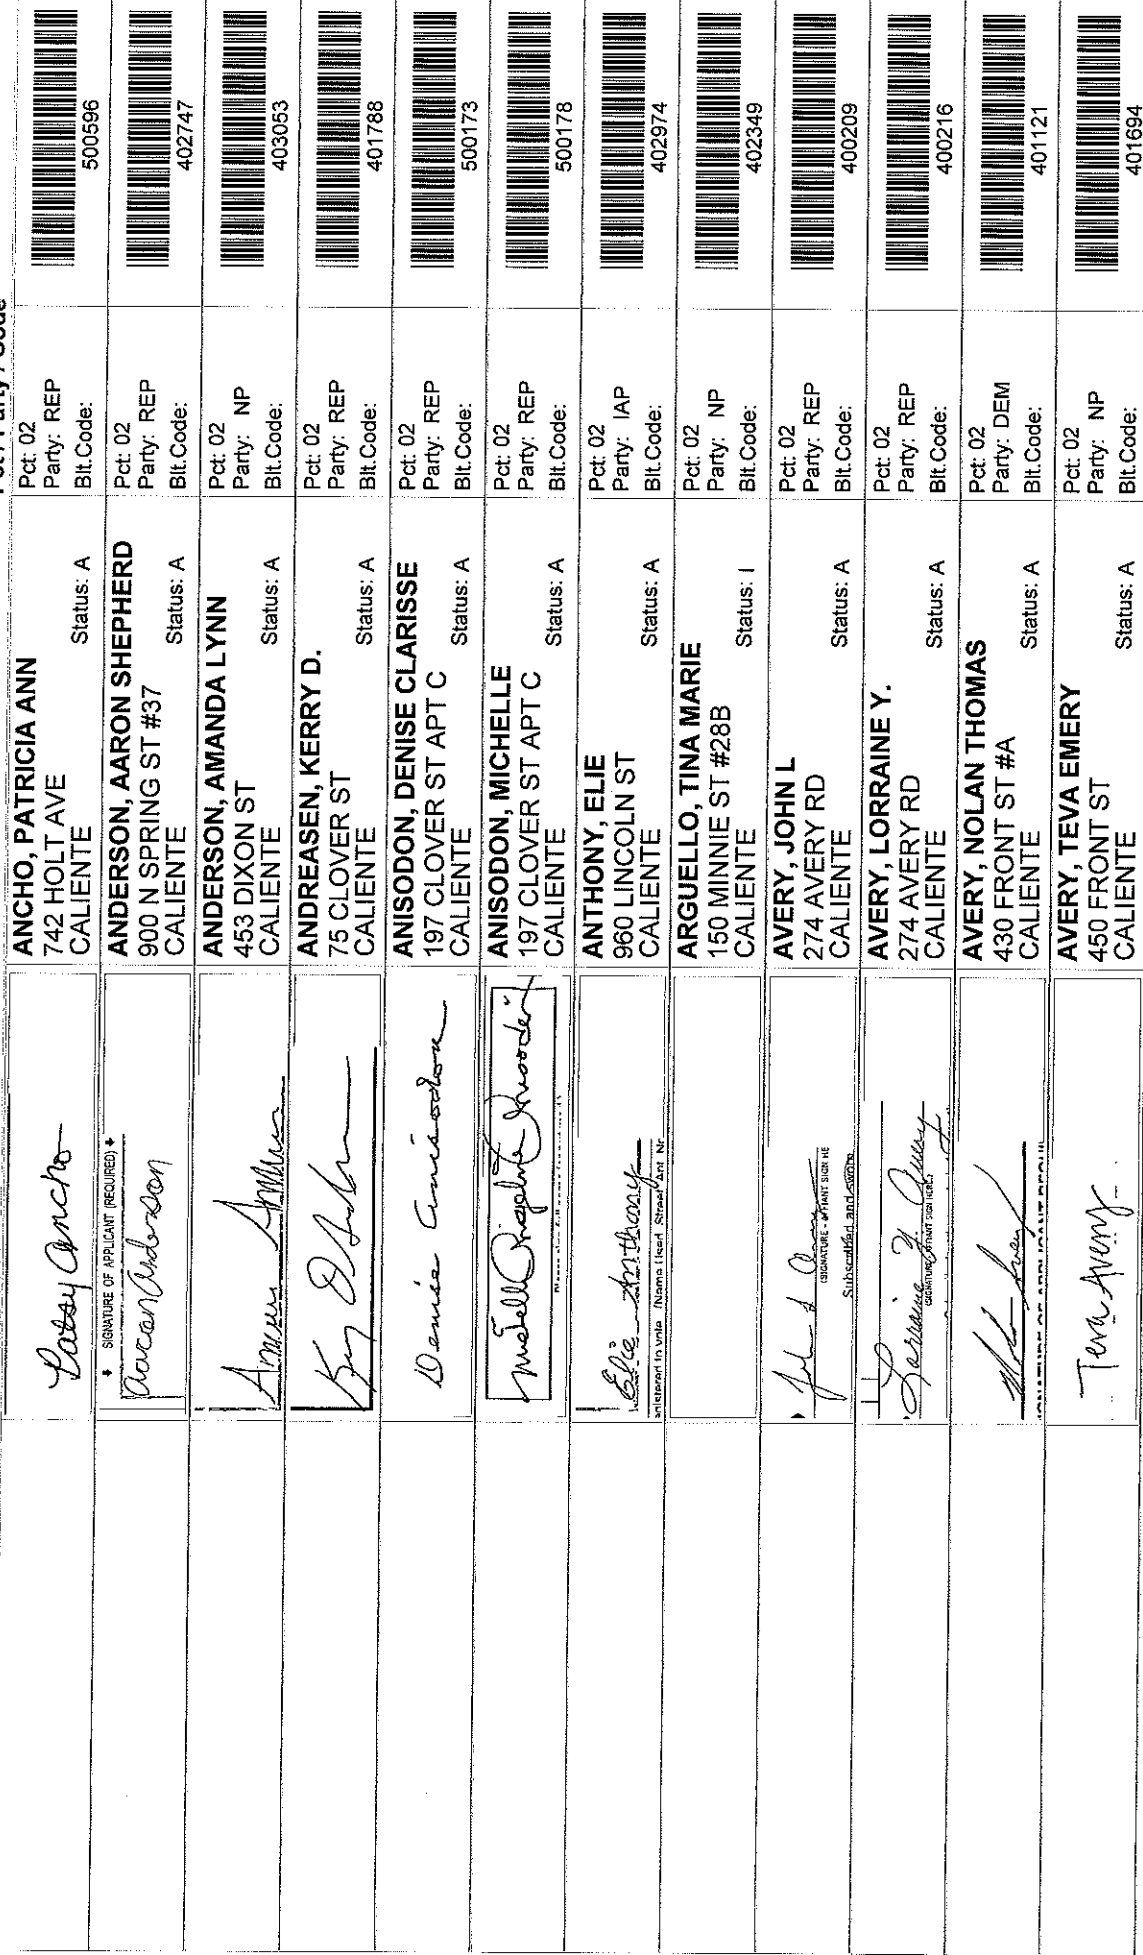 Pct / Party / Code
Patsy Ancho
ANCHO, PATRICIA ANN
742 HOLT AVE
CALIENTE
Status: A
Pct: 02
Party: REP
Blt.Code:
500596
SIGNATURE OF APPLICANT (REQUIRED)
Aaron Anderson
ANDERSON, AARON SHEPHERD
900 N SPRING ST #37
CALIENTE
Status: A
Pct: 02
Party: REP
Blt.Code:
402747
ANDERSON, AMANDA LYNN
453 DIXON ST
CALIENTE
Status: A
Pct: 02
Party: NP
Blt.Code:
403053
ANDREASEN, KERRY D.
75 CLOVER ST
CALIENTE
Status: A
Pct: 02
Party: REP
Blt.Code:
401788
Denise Anisodon
ANISODON, DENISE CLARISSE
197 CLOVER ST APT C
CALIENTE
Status: A
Pct: 02
Party: REP
Blt.Code:
500173
ANISODON, MICHELLE
197 CLOVER ST APT C
CALIENTE
Status: A
Pct: 02
Party: REP
Blt.Code:
500178
Elie Anthony
ANTHONY, ELIE
960 LINCOLN ST
CALIENTE
Status: A
Pct: 02
Party: IAP
Blt.Code:
402974
ARGUELLO, TINA MARIE
150 MINNIE ST #28B
CALIENTE
Status: I
Pct: 02
Party: NP
Blt.Code:
402349
John L Avery
(SIGNATURE - AFFIANT SIGN HE
Subscribed and sworn
AVERY, JOHN L
274 AVERY RD
CALIENTE
Status: A
Pct: 02
Party: REP
Blt.Code:
400209
Lorraine Y. Avery
AVERY, LORRAINE Y.
274 AVERY RD
CALIENTE
Status: A
Pct: 02
Party: REP
Blt.Code:
400216
AVERY, NOLAN THOMAS
430 FRONT ST #A
CALIENTE
Status: A
Pct: 02
Party: DEM
Blt.Code:
401121
Teva Avery
AVERY, TEVA EMERY
450 FRONT ST
CALIENTE
Status: A
Pct: 02
Party: NP
Blt.Code:
401694